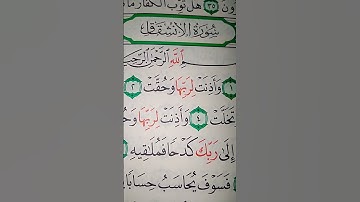 ون ٣٥ هَلْ ثُوِّبَ الْكُفَّارُ مَا
سُورَةُ الْاِنْشِقَاقِ
اللَّهِ الرَّحْمٰنِ الرَّحِيمِ
١ وَأَذِنَتْ لِرَبِّهَا وَحُقَّتْ ٢
تَخَلَّتْ ٤ وَأَذِنَتْ لِرَبِّهَا وَحُ
إِلَىٰ رَبِّكَ كَدْحًا فَمُلَاقِيهِ
فَسَوْفَ يُحَاسَبُ حِسَابًا